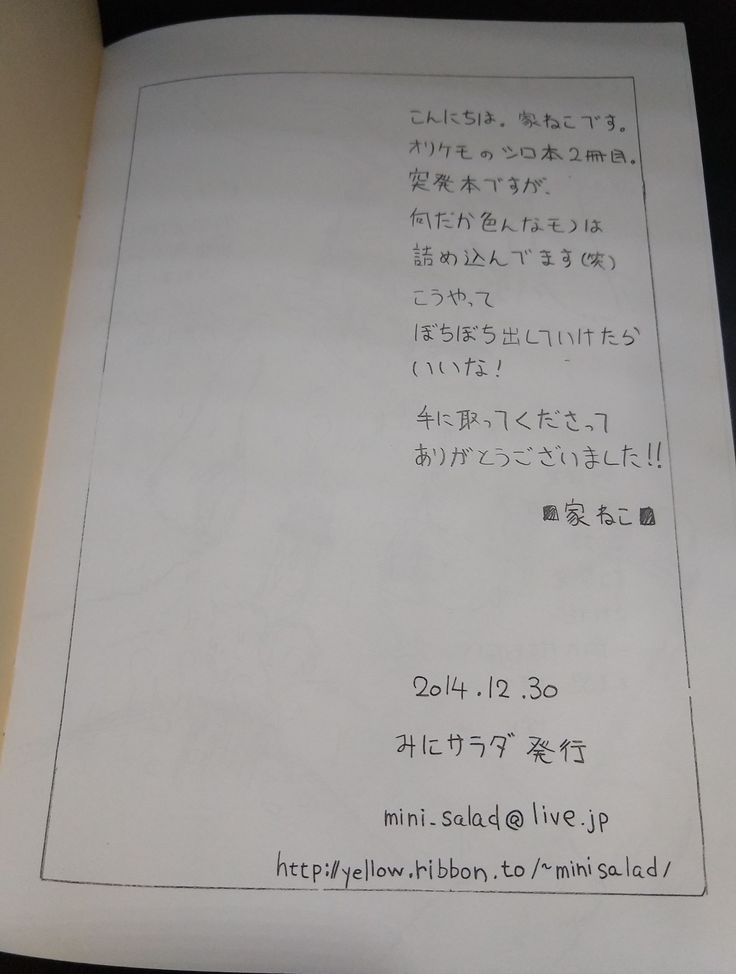 こんにちは。家ねこです。
オリケモのシロ本2冊目。
突発本ですが、
何だか色んなモノは
詰め込んでます(笑)
こうやって
ぼちぼち出していけたら
いいな!
手に取ってくださって
ありがとうございました!!
家ねこ
2014.12.30
みにサラダ 発行
mini_salad@live.jp
http://yellow.ribbon.to/~minisalad/